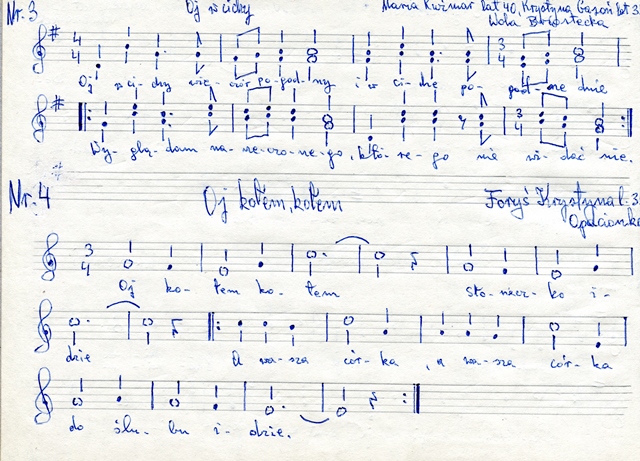 Nr. 3 Oj w cichy Maria Kuźniar lat 40, Krystyna Gąsoń lat 3
Wola Brzostecka
Oj w ci- chy wie- czór po- god- ny i w ci- che po- god- ne dnie
Wy- glą- dam na- rze- czo- ne- go, któ- re- go nie wi- dać nie.
Nr. 4 Oj kołem, kołem Foryś Krystyna l. 3
Opacionka
Oj ko- łem ko- łem sło- necz- ko i-
dzie A wa- sza cór- ka, a wa- sza cór- ka
do ślu- bu i- dzie.